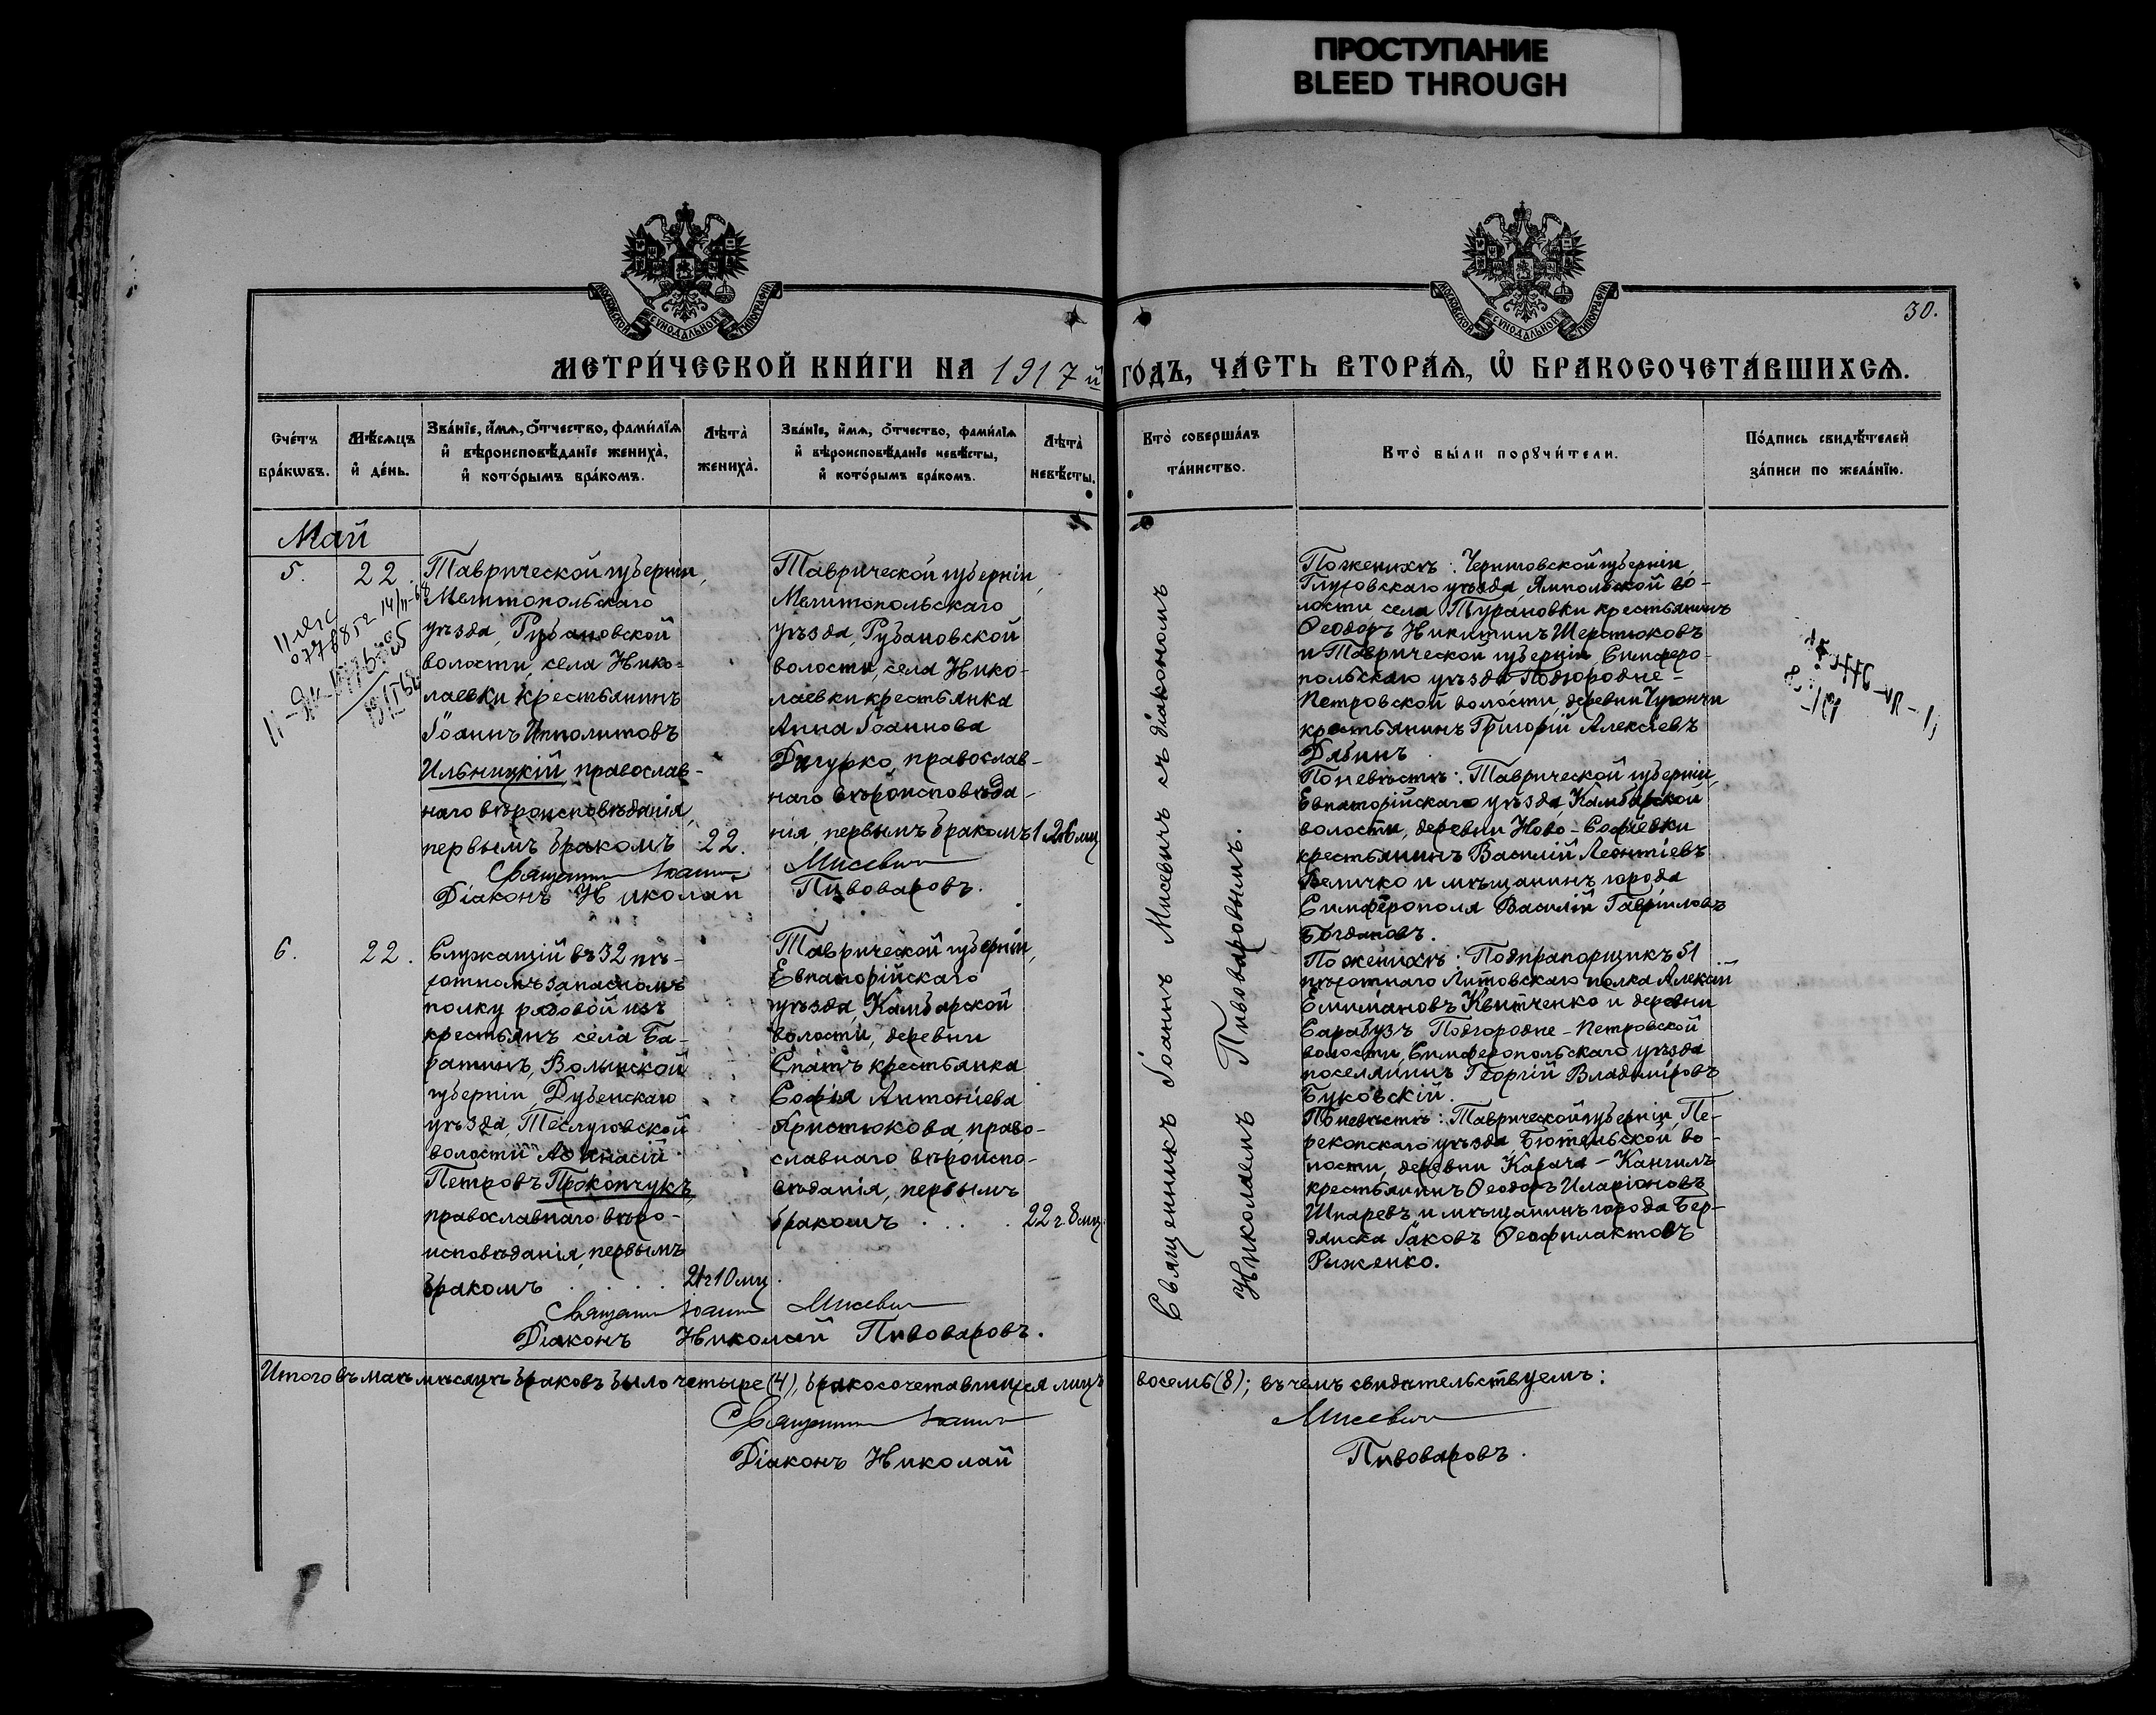 ПРОСТУПАНИЕ
BLEED THROUGH
МОСКОВСКОЙ СѴНОДАЛЬНОЙ ТИПОГРАФІИ
МОСКОВСКОЙ СѴНОДАЛЬНОЙ ТИПОГРАФІИ
30.
МЕТРИ́ЧЕСКОЙ КНИ́ГИ НА 1917й ГО́ДЪ, ЧА́СТЬ ВТОРА́Ѧ, Ѽ БРАКОСОЧЕТА́ВШИХСѦ.
Сче́тъ
бра́кѡвъ.
Мѣ́сѧцъ
и҆ де́нь.
Зва́нїе, и҆́мѧ, ѻ҆́тчество, фами́лїѧ
и҆ вѣроисповѣ́данїе жениха̀,
и҆ кото́рымъ бра́комъ.
Лѣта̀
жениха̀.
Зва́нїе, и҆́мѧ, ѻ҆́тчество, фами́лїѧ
и҆ вѣроисповѣ́данїе невѣ́сты,
и҆ кото́рымъ бра́комъ.
Лѣта̀
невѣ́сты.
Кто̀ соверша́лъ
та́инство.
Кто̀ бы́ли порꙋчи́тели.
По́дпись свидѣ́телей
за́писи по жела́нїю.
Май
5.
22.
Таврической губерніи,
Мелитопольскаго
уѣзда, Рубановской
волости, села Нико-
лаевки крестьянинъ
Іоаннъ Ипполитовъ
Ильницкій, православ-
наго вѣроисповѣданія,
первымъ бракомъ
22.
Таврической губерніи,
Мелитопольскаго
уѣзда, Рубановской
волости, села Нико-
лаевки крестьянка
Анна Іоаннова
Дигурко, православ-
наго вѣроисповѣда-
нія первымъ бракомъ
Священник Іоанн Мисевич
Діаконъ Николай Пивоваровъ.
Священникъ Іоаннъ Мисевичъ съ діакономъ
Николаемъ Пивоваровымъ.
По женихѣ: Черниговской губерніи,
Глуховскаго уѣзда, Ямпольской во-
лости села Турановки крестьянинъ
Ѳеодоръ Никитинъ Шерстюковъ
и Таврической губерніи Симферо-
польскаго уѣзда Подгородне-
Петровской волости, деревни
крестьянинъ Григорій Алексіевъ
Дябинъ
По невѣстѣ: Таврической губерніи,
Евпаторійскаго уѣзда, Камбарской
волости, деревни Ново-Софіевки
крестьянинъ Василій Леонтіевъ
Величко и мѣщанинъ города
Симферополя Василій Гавріиловъ
Богдановъ.
6.
22.
Служащій въ 32 пѣ-
хотномъ запасномъ
полку рядовой изъ
крестьянъ села Ба-
ратинъ, Волынской
губерніи Дубенскаго
уѣзда, Теслуговской
волости Аѳанасій
Петровъ Прокопчукъ,
православнаго вѣро-
исповѣданія, первымъ
бракомъ
21 г 10 мц.
Таврической губерніи,
Евпаторійскаго
уѣзда, Камбарской
волости, деревни
Спатъ крестьянка
Софія Антоніева
Христюкова, право-
славнаго вѣроиспо-
вѣданія, первымъ
бракомъ
22 г. 8 мц
Священник Іоанн Мисевич
Діаконъ Николай Пивоваровъ.
По женихѣ: Подпрапорщикъ 51
пѣхотнаго Литовскаго полка Алексій
Емиліановъ Квитченко и деревни
Сарабузъ Подгородне-Петровской
волости, Симферопольскаго уѣзда
поселянинъ Георгій Владиміровъ
Буковскій.
По невѣстѣ: Таврической губерніи, Пе-
рекопскаго уѣзда Бютеньской во-
лости, деревни Карача-Кангилъ
крестьянинъ Ѳеодоръ Иларіоновъ
Шпаревъ и мѣщанинъ города Бер-
дянска Іаковъ Ѳеофилактовъ
Рыженко.
Итого въ маѣ мѣсяцѣ браковъ было четыре (4), бракосочетавшихся лицъ восемь (8); въ чемъ свидѣтельствуемъ:
Священник Іоанн Мисевич
Діаконъ Николай Пивоваровъ.